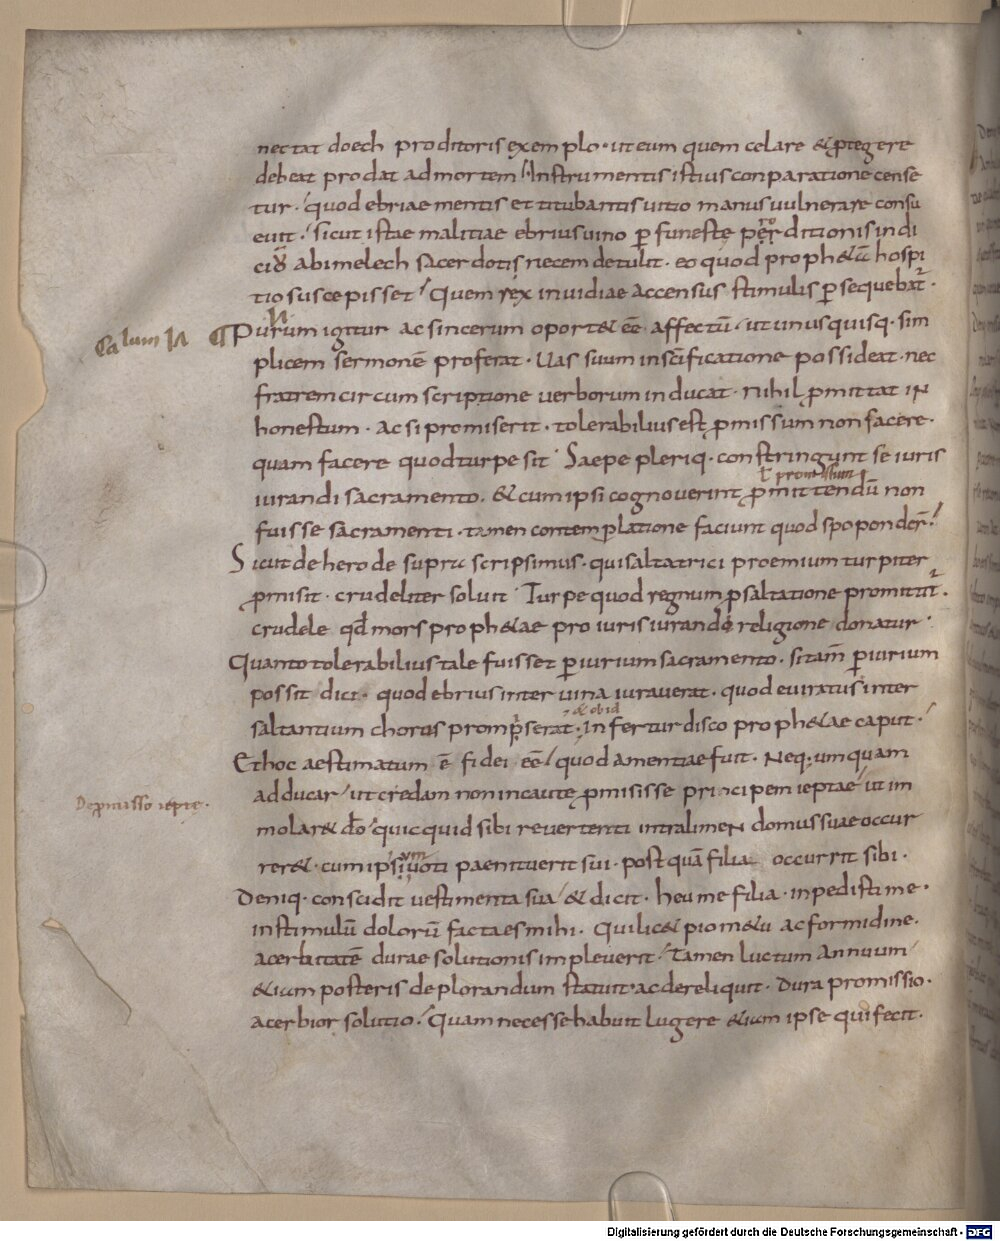 nectat doech proditoris exemplo · ut eum quem celare & ꝓtegere
debeat prodat ad mortem / Instrumentis istius conparatione cense
tur · quod ebriae mentis et titubantis uitio manus uulnerare consu
euit · sicut istae malitiae ebrius uino ꝑ funeste perditionis indi
ciū abimelech sacerdotis necem detulit · eo quod proph&ā hospi
tio suscepisset / Quem rex inuidiae accensus stimulis ꝑsequebat᷑ ·
Calumn
Purum igitur ac sincerum oport& ēe affectū · ut unusquisq · sim
plicem sermonē proferat · Uas suum in sc̄ificatione possideat · nec
fratrem circumscriptione uerborum inducat · nihil ꝓmittat in
honestum · ac si promiserit · tolerabilius est ꝓmissum non facere ·
quam facere quod turpe sit Saepe pleriq · constringunt se iuris
ł promissum
iurandi sacramento · & cum ipsi cognouerint ꝓmittendū non
fuisse sacramenti · tamen contemplatione faciunt quod spoponder̄ ·
Sicut de herode supra scripsimus · qui saltatrici proemium turpiter
ꝓmisit · crudeliter soluit Turpe quod regnum ꝓ saltatione promittit᷑ ·
crudele qd̄ mors proph&ae pro iurisiurandi religione donatur ·
Quanto tolerabilius tale fuisset ꝑiurium sacramento · si tam̄ ꝑiurium
possit dici · quod ebrius inter uina iurauerat · quod euiratus inter
& obid
saltantium chorus prompserat · Infertur disco proph&ae caput ·
Et hoc aestimatum ē fidei ēe / quod amentiae fuit · Neq; umquam
De ꝓmisso iepte ·
adducar / ut credam non incaute ꝓmisisse principem ieptae / ut im
molar& dō quicquid sibi reuertenti intra limen domus suae occur
um
rer& · cum ipsi uoti paenituerit sui · post quā filia occurrit sibi ·
Deniq · conscidit uestimenta sua / & dicit · heu me filia · inpedisti me ·
in stimulū dolorū facta es mihi · Qui lic& pio m&u ac formidine ·
acerbitatē durae solutionis impleuerit / Tamen luctum annuum
&iam posteris deplorandum statuit · ac dereliquit · Dura promissio ·
acerbior solutio · Quam necesse habuit lugere &iam ipse qui fecit ·
Digitalisierung gefördert durch die Deutsche Forschungsgemeinschaft - DFG